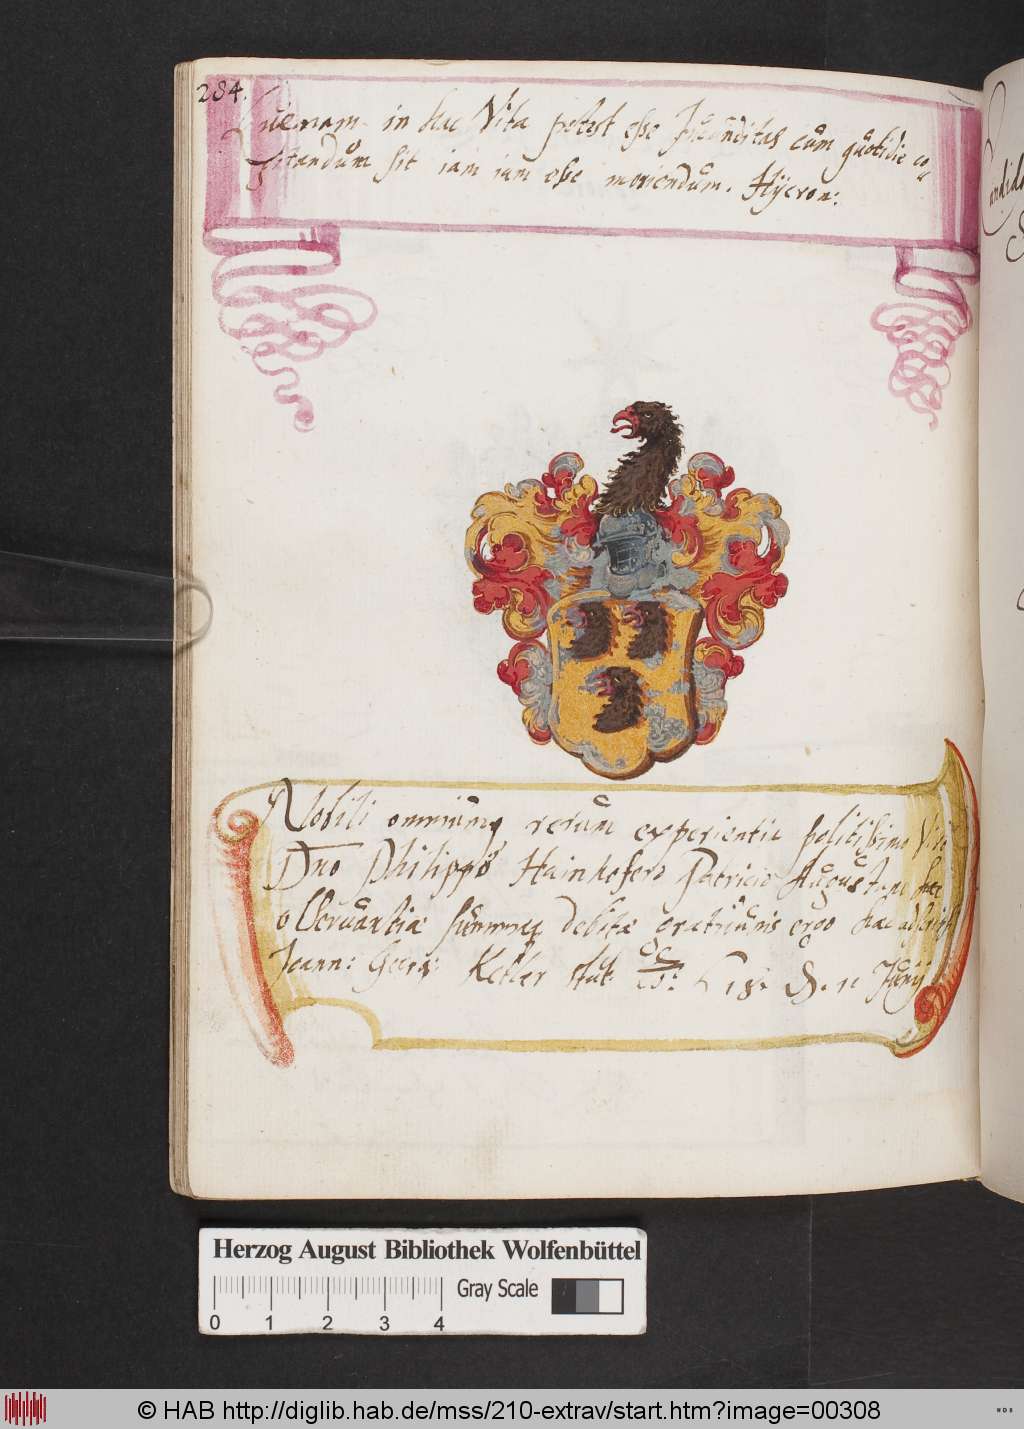 284.
Quenam in hac Vita potest esse Jucunditas cum quotidie co=
gitandum sit iam iam esse moriendum. Hÿeron:
Nobili omniumq rerum experientia politissimo Viro
Dno Philippo Hainhofero Patricio August. hæc
obseruantiæ summæq debitæ ergo hæc adscribit
Joann: Georg: Keller 18. 11 Junij
Herzog August Bibliothek Wolfenbüttel
Gray Scale
0 1 2 3 4
© HAB http://diglib.hab.de/mss/210-extrav/start.htm?image=00308